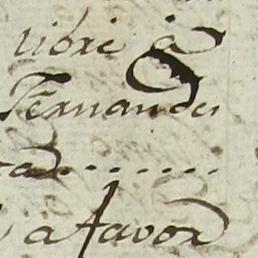 libre à
Fernandes
a favor